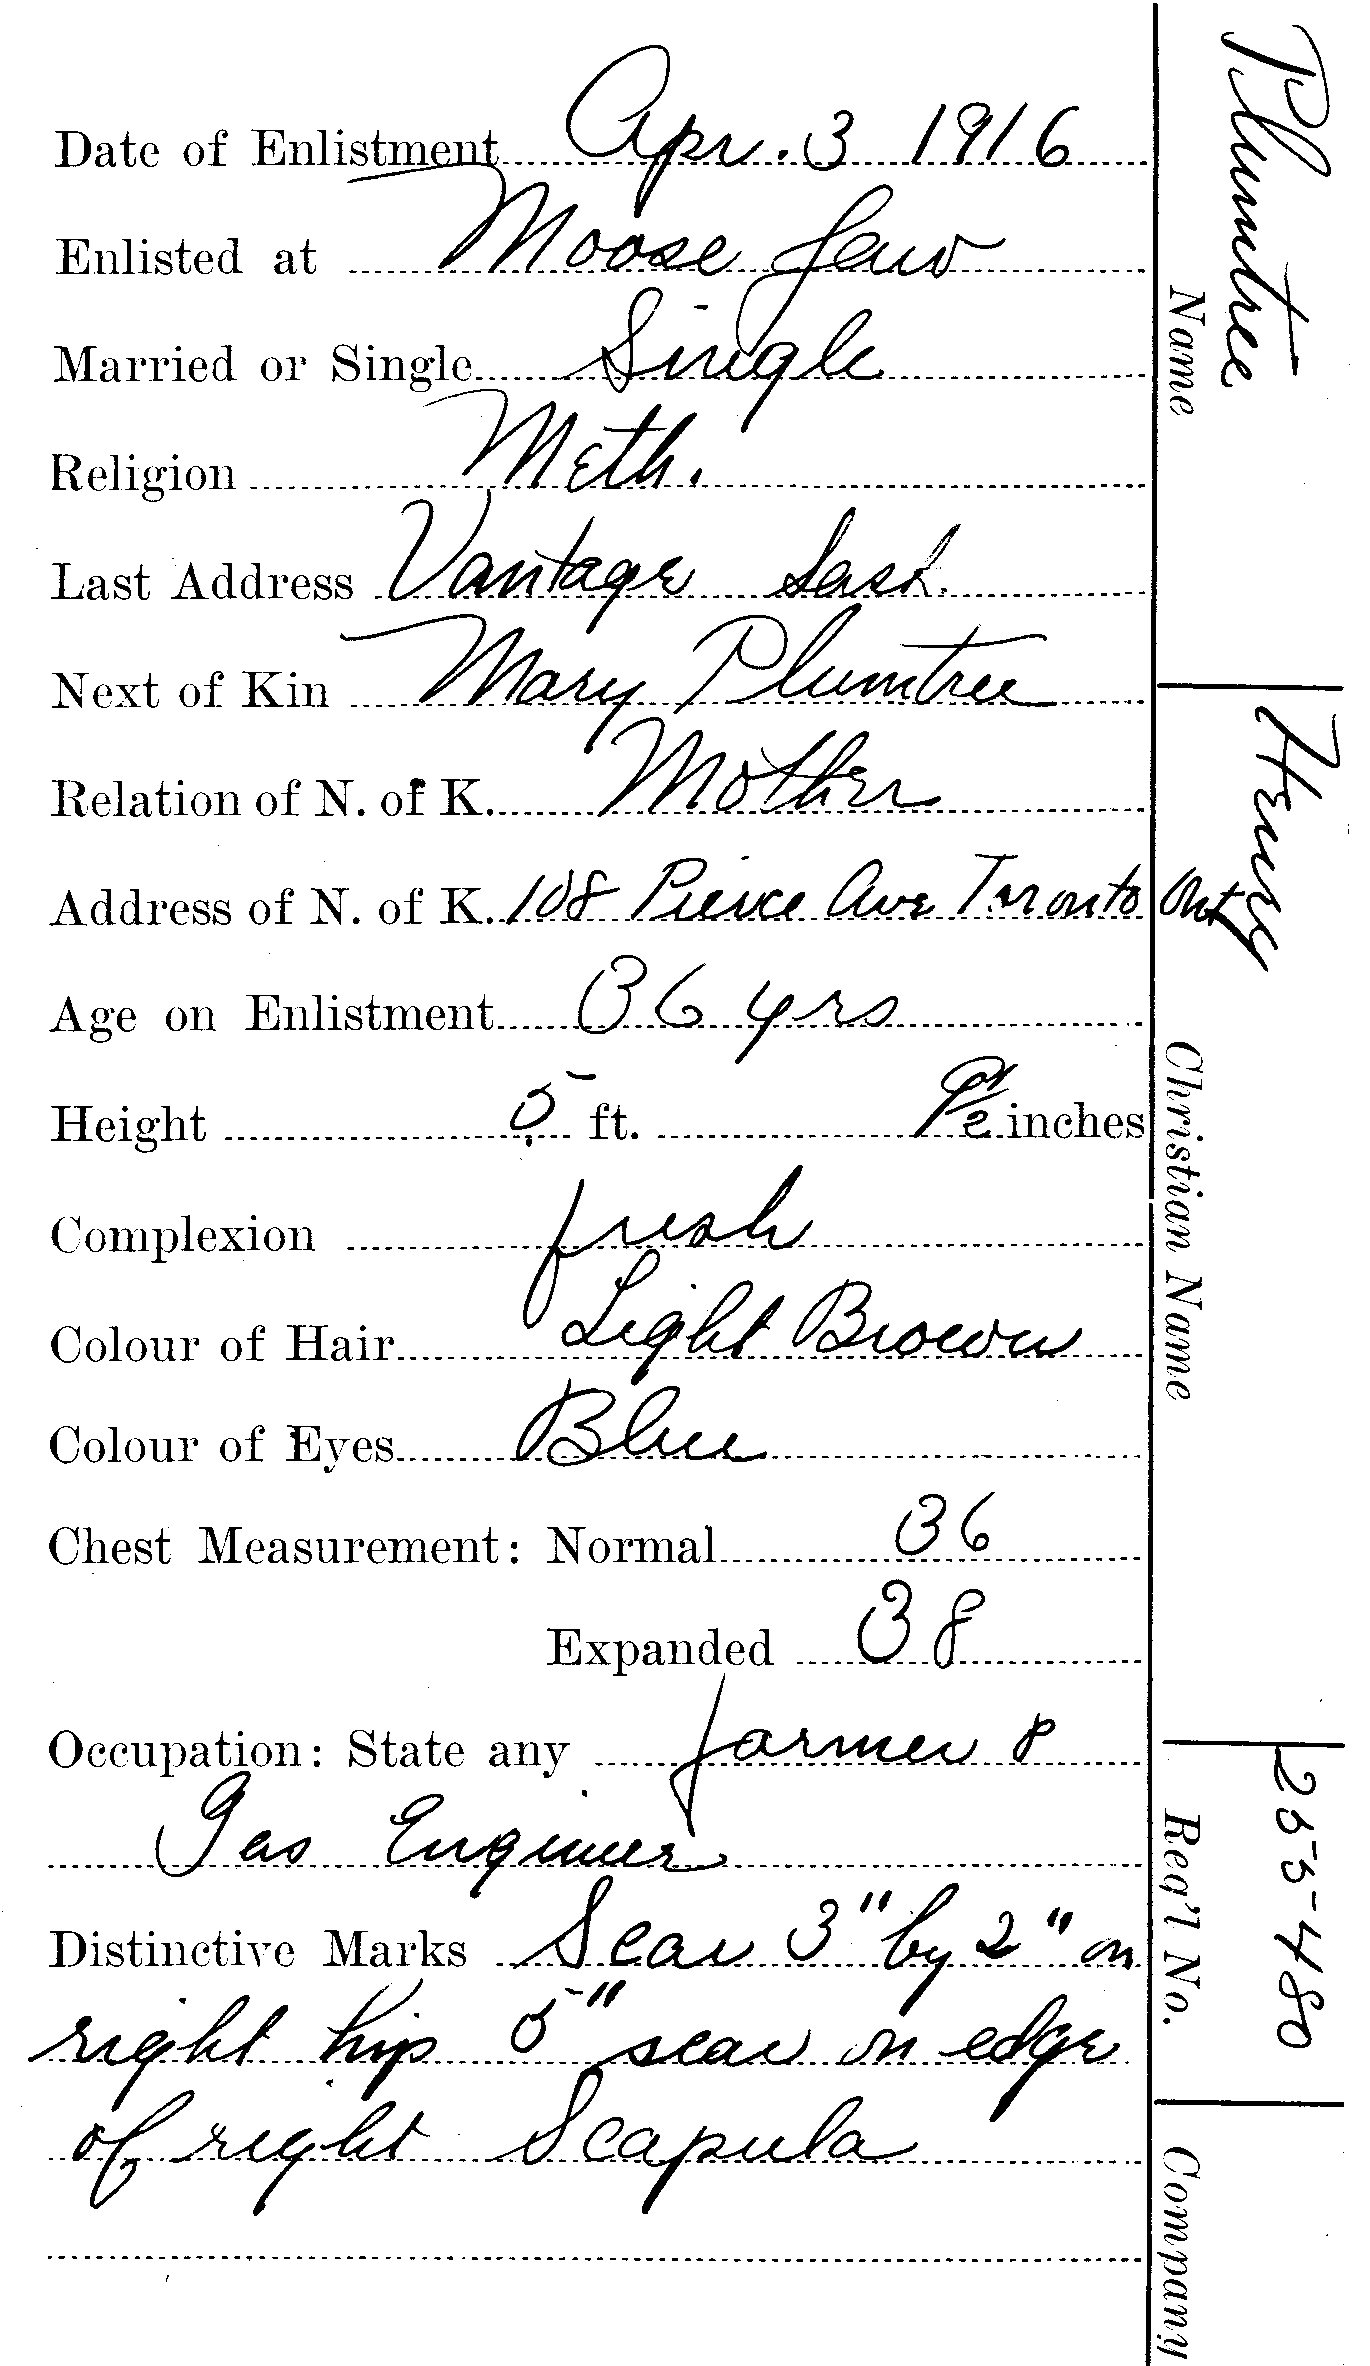 Date of Enlistment Apr. 3 1916
Enlisted at Moose Jaw
Married or Single Single
Religion Meth.
Last Address Vantage Sask.
Next of Kin Mary Plumtree
Relation of N. of K. Mother
Address of N. of K. 108 Pierce Ave Toronto Ont
Age on Enlistment 36 yrs
Height 5 ft. inches
Complexion fresh
Colour of Hair Light Brown
Colour of Eyes Blue
Chest Measurement: Normal 36
Expanded 38
Occupation: State any farmer &
Gas Engineer
Distinctive Marks Scar 3" by 2" on
right hip 5" scar on edge
of right Scapula
Plumtree
Name
Henry
Christian Name
255480
Reg'l No.
Company